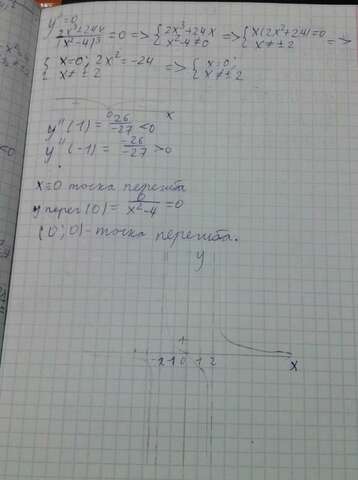 y''=0
2x³+24x / (x²-4)³ = 0 => { 2x³+24x x²-4≠0 => { x(2x²+24)=0 x≠±2 =>
{ x=0; 2x²=-24 x≠±2 => { x=0; x≠±2
0 x
y''(1) = 26/-27 <0
y''(-1) = -26/-27 >0
x=0 точка перегиба
y перег(0) = 0/x²-4 = 0
(0;0) - точка перегиба.
y
1
-2 -1 0 1 2
x